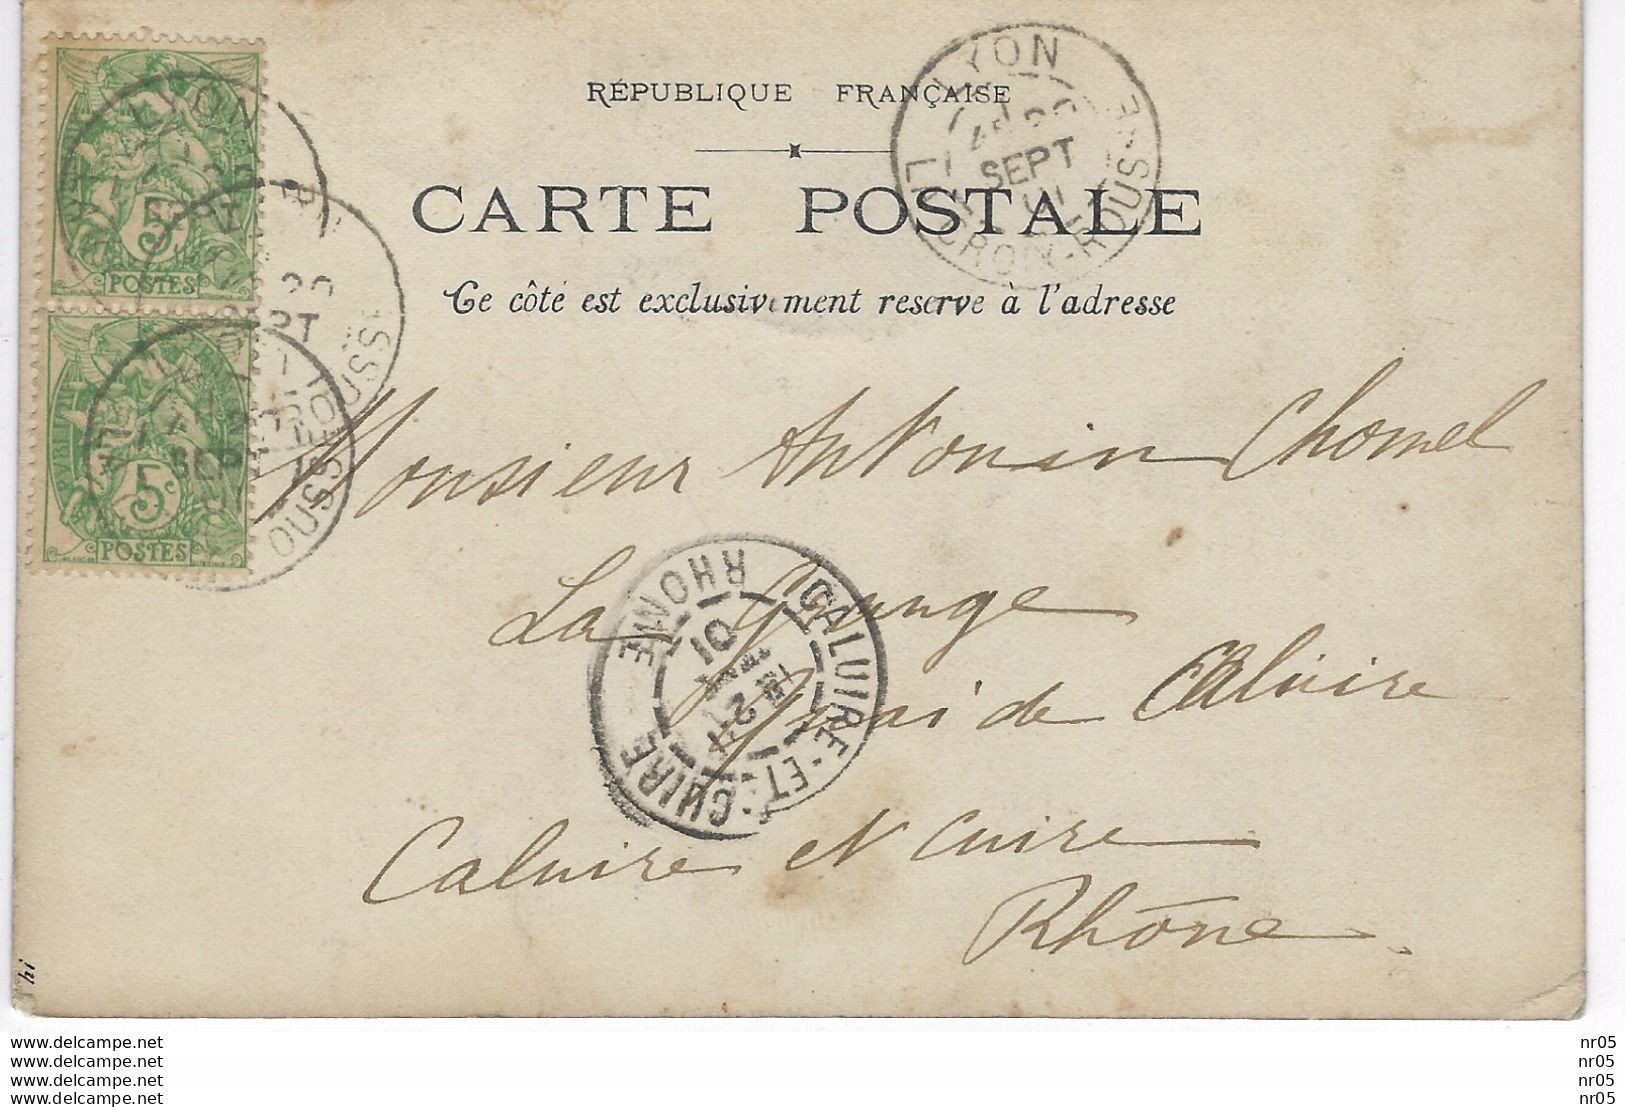 RÉPUBLIQUE FRANÇAISE
CARTE POSTALE
Ce côté est exclusivement reservé à l'adresse
LYON
SEPT
01
LA CROIX-ROUSSE
LYON
5
POSTES
SEPT
ROUSSE
5c
POSTES
OUSSE
Monsieur Antonin Chomel
La Grange
Quai de Caluire
Caluire et Cuire
Rhône.
CALUIRE-ET-CUIRE
RHONE
01
hi
www.delcampe.net
www.delcampe.net
www.delcampe.net
www.delcampe.net
nr05
nr05
nr05
nr05